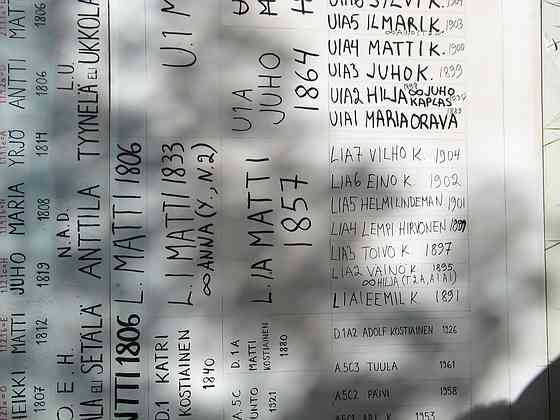 MATT
1806
ANTTI
1806
YRJÖ
1814
MARIA
1808
JUHO
1819
MATTI
1812
HEIKKI
1807
L.U.
TYYNELÄ ELI UKKOLA
N.A.D.
ANTTILA
O E.H.
ALA ELI SETÄLÄ
L. MATTI 1806
NTTI 1806
U.1 M
L.1 MATTI 1833
∞ ANNA (Y., N.2)
D.1 KATRI
KOSTIAINEN
1840
U1A
JUHO
1864
L.1A MATTI
1857
D.1A
MATTI
KOSTIAINEN
1880
A.5C
UNTO
1921
U1A5 ILMARI K. 1903
U1A4 MATTI K. 1900
U1A3 JUHO K. 1899
U1A2 HILJA
∞ JUHO
KAPLAS
U1A1 MARIA ORAVA
L1A7 VILHO K. 1904
L1A6 EINO K. 1902
L1A5 HELMI LINDEMAN 1901
L1A4 LEMPI HIRVONEN 1899
L1A3 TOIVO K. 1897
L1A2 VÄINÖ K. 1895
∞ HILJA (T.2A, A1A1)
L1A1 EEMIL K. 1891
D.1A2 ADOLF KOSTIAINEN 1926
A.5C3 TUULA 1961
A.5C2 PÄIVI 1958
A.5C1 ARI K. 1953